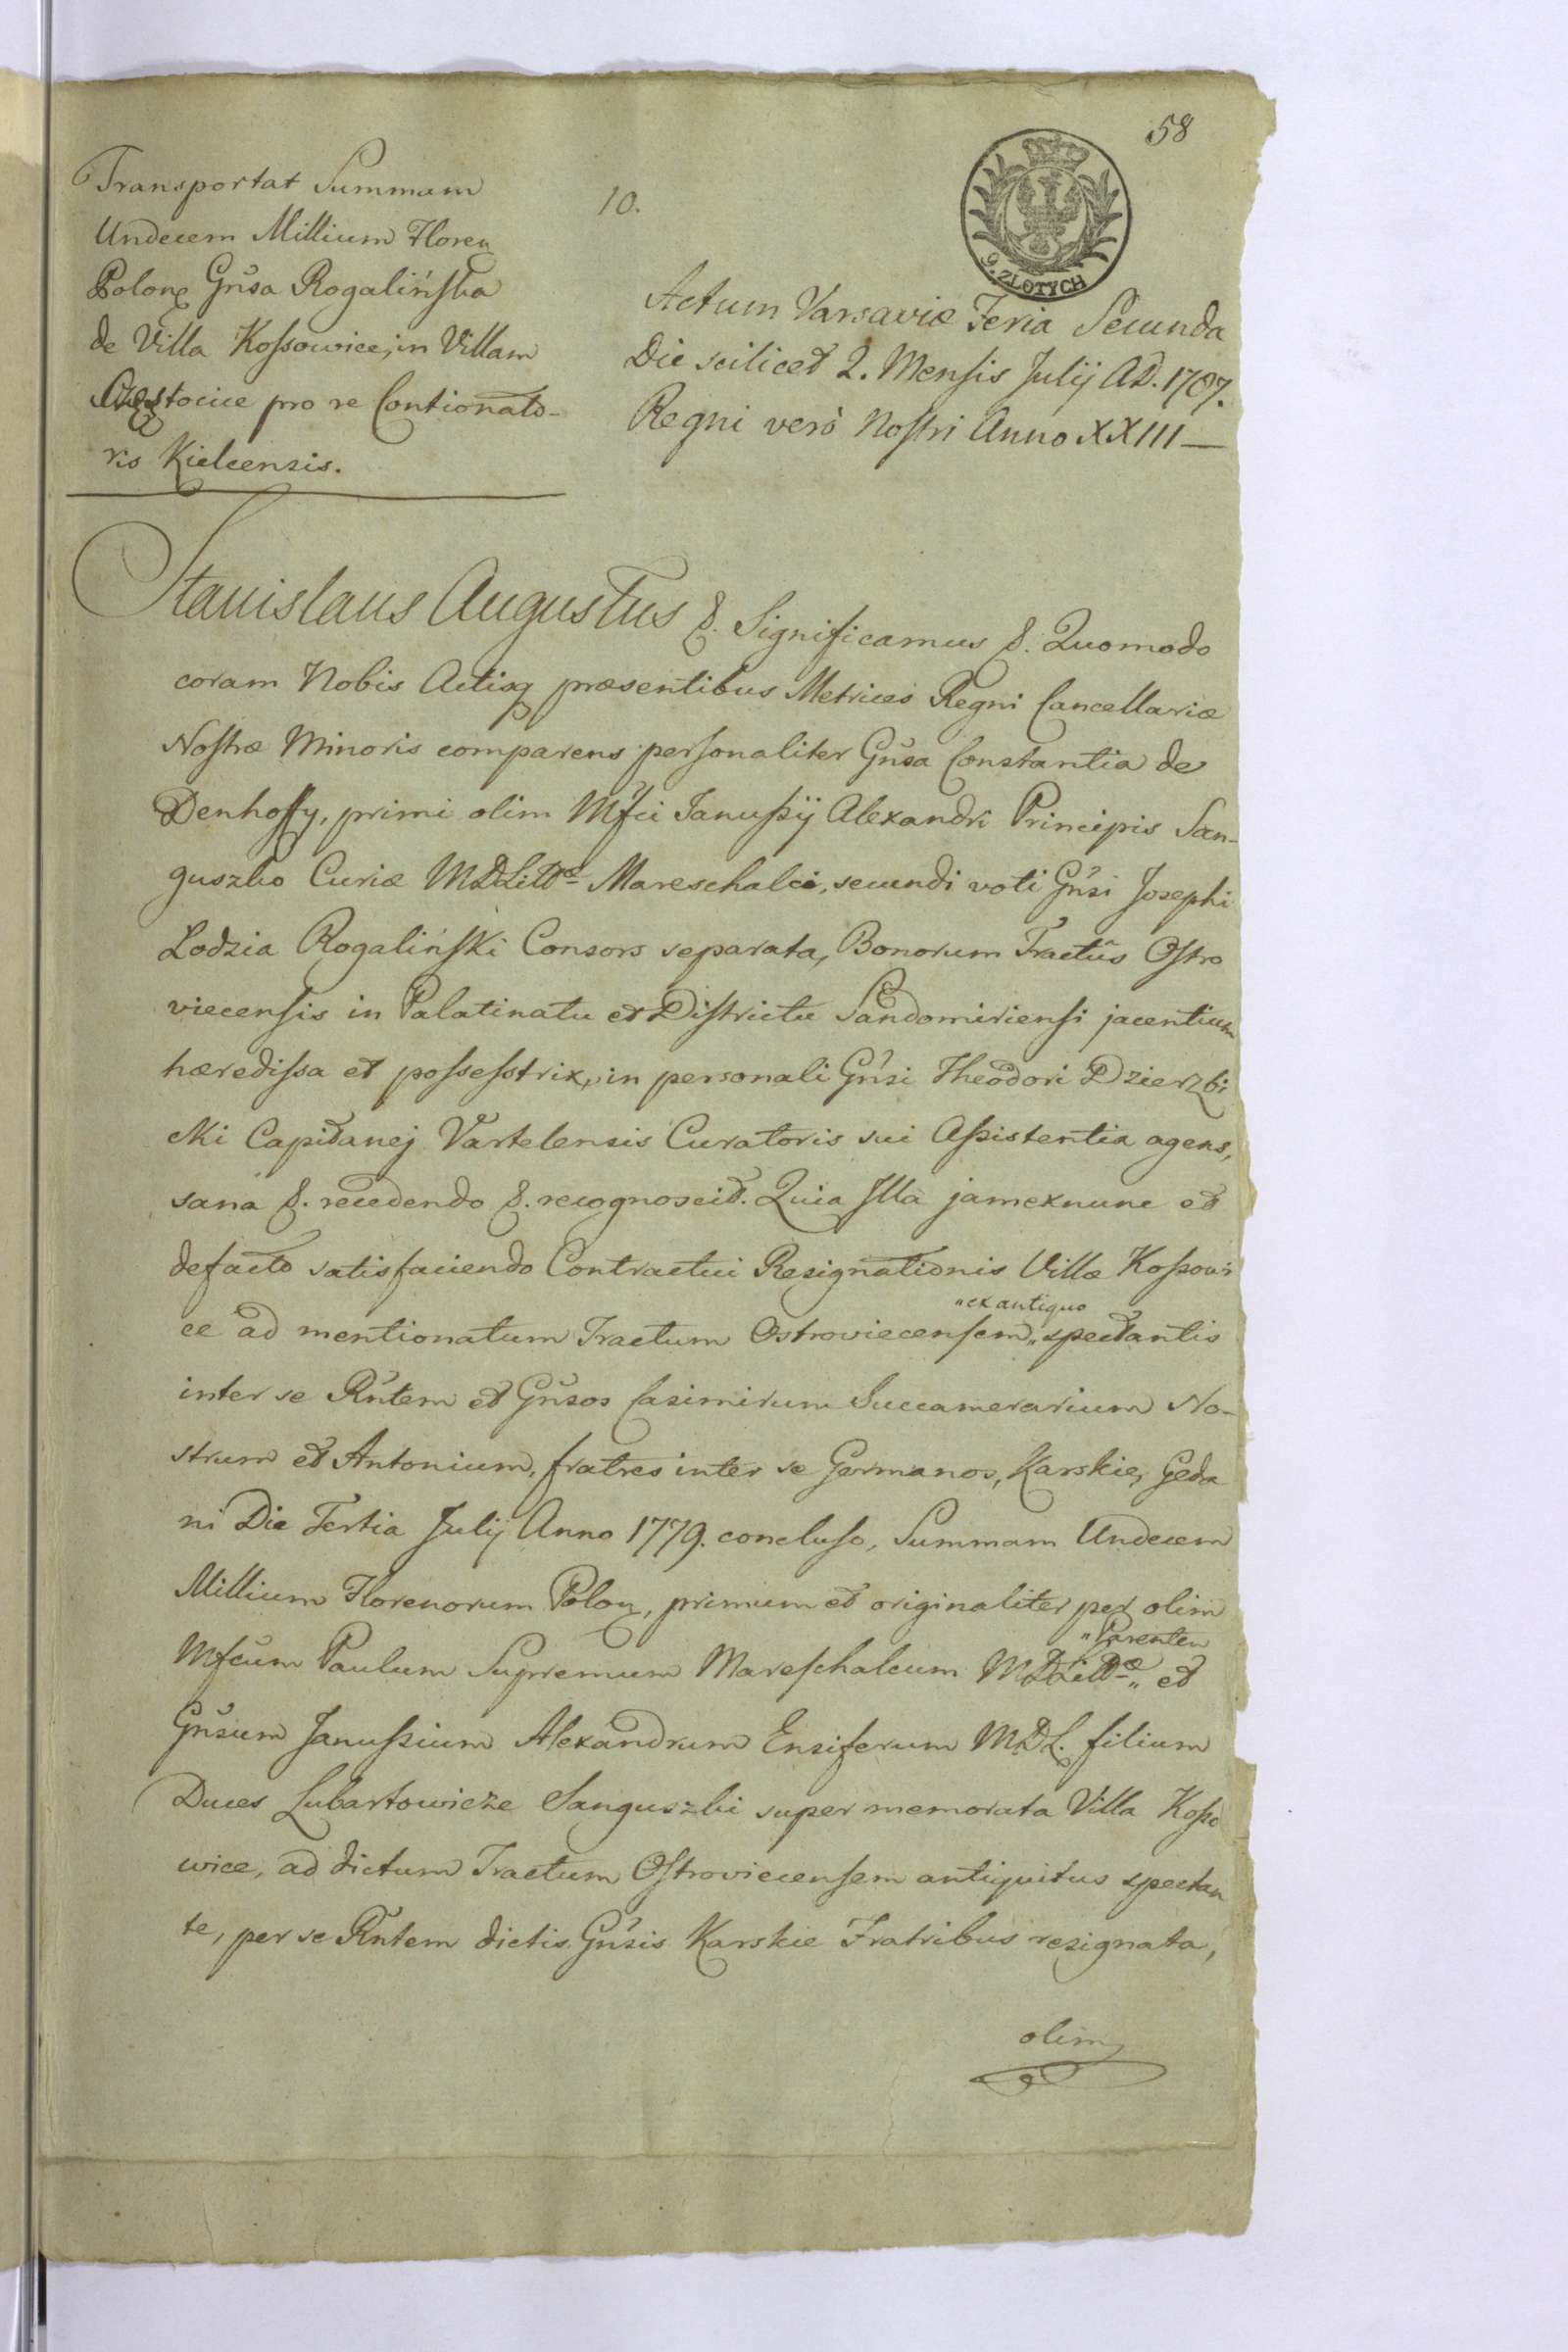 58
10.
9. ZŁOTYCH
Transportat Summam
Undecem Millium Floren
Polonę Gnsa Rogalińska
de Villa Kossowice, in Villam
Częstocice pro re Contionato-
ris Kielcensis.
Actum Varsaviæ Feria Secunda
Die scilicet 2. Mensis Julij AD. 1787.
Regni verò Nostri Anno XXIII—
Stanislaus Augustus &. Significamus &. Quomodo
coram Nobis Actisq præsentibus Metrices Regni Cancellariæ
Nostræ Minoris comparens personaliter Gnsa Constantia de
Denhoffy, primi olim Mfci Janussij Alexandri Principis San-
guszko Curiæ MDLittæ Mareschalci, secundi voti Gnsi Josephi
Lodzia Rogaliński Consors separata, Bonorum Tractus Ostro
viecensis in Palatinatu et Districtu Sandomiriensi jacentium
hæredissa et possesstrix, in personali Gnsi Theodori Dzierzbi
cki Capitanej Vartelensis Curatoris sui Assistentia agens,
sana &. recedendo &. recognoscit. Quia Illa jamexnunc et
defacto satisfaciendo Contractui Resignationis Villæ Kossowi
ce ad mentionatum Tractum Ostroviecensem „ex antiquo„ spectantis
inter se Rntem et Gnsos Casimirum Succamerarium No-
strum et Antonium, fratres inter se Germanos, Karskie, Geda
ni Die Tertia Julij Anno 1779. concluso, Summam Undecem
Millium Florenorum Polon, primum et originaliter per olim
Mfcum Paulum Supremum Mareschalcum MDLittæ „Parentem„ et
Gnsum Janussium Alexandrum Ensiferum MDL. filium
Duces Lubartowicze Sanguszki super memorata Villa Kosso
wice, ad dictum Tractum Ostroviecensem antiquitus spectan
te, per se Rntem dictis Gnsis Karskie Fratribus resignata,
olim